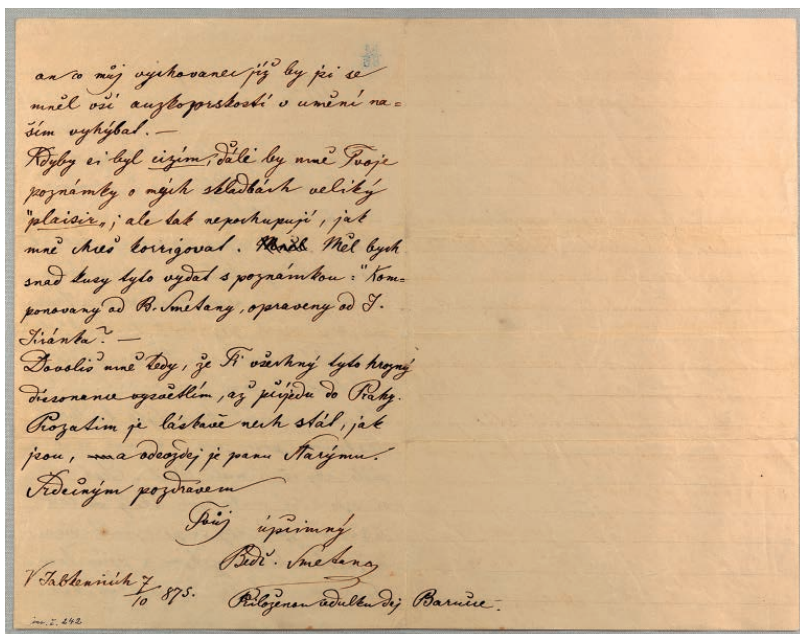 an co můj vychovanec již by si se
měl vší auzkoprskostí v umění na=
ším vyhýbat. —
Kdyby si byl cizím, dáli by mně Tvoje
poznámky o mých skladbách veliký
"plaisir„; ale tak nepochupují, jak
mně chceš korrigovat. Měl bych
snad kusy tyto vydat s poznámkou: "Kom=
ponovany od B. Smetany, opraveny od J.
Jiránka"? —
Dovolíš mně tedy, že Ti všechný tyto hrozný
dissonance vysvětlím, až přijedu do Prahy.
Prozatim je láskavě nech stát, jak
jsou, a odevzdej je panu Starýmu.
Srdečným pozdravem
Tvůj upřimný
Bedř. Smetana
V Jabkenicích 7/10 875.
Přiloženou cedulku dej Baruše.
inv. I. 242